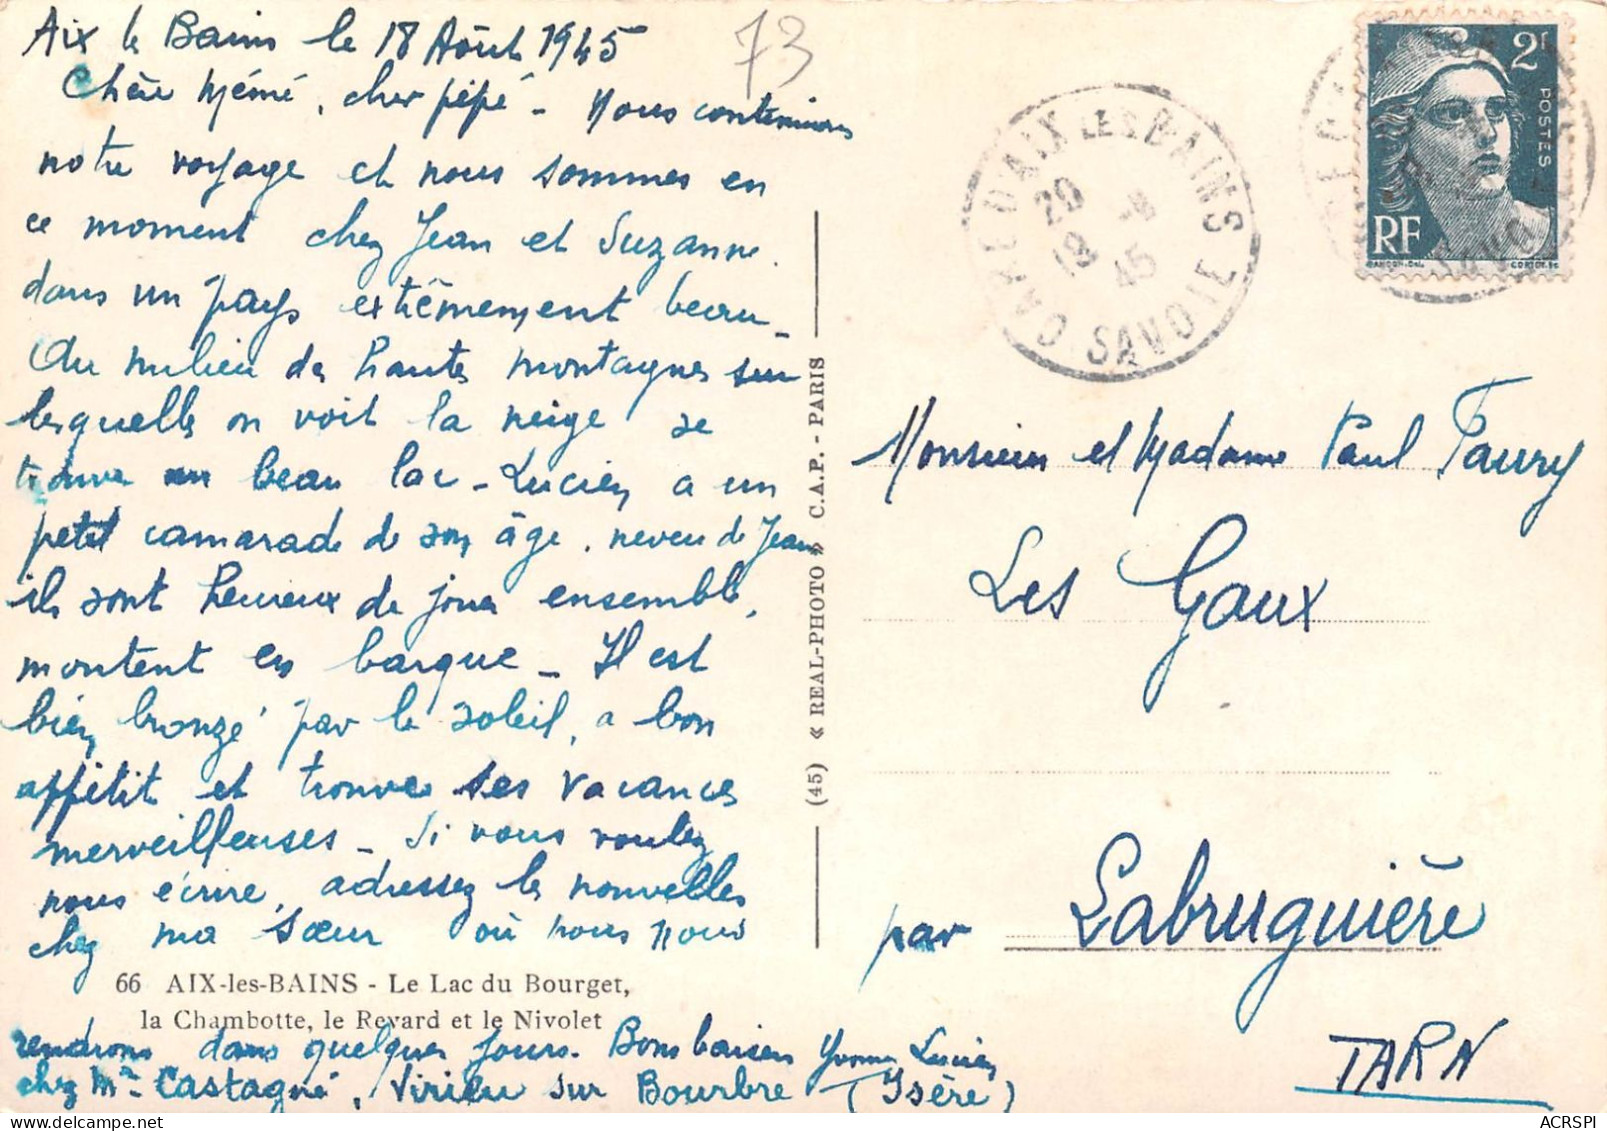 Aix le Bains le 18 Août 1945
73
Chère Mémé, cher pépé - Nous continuons
notre voyage et nous sommes en
ce moment chez Jean et Suzanne.
dans un pays extêmement beau -
Au milieu des hautes montagnes sur
lesquelles on voit la neige se
trouve un beau lac - Lucien a un
petit camarade de son âge, neveu de Jean
ils sont heureux de jouer ensemble,
montent en barque - Il est
bien bronzé par le soleil, a bon
appétit et trouve ses vacances
merveilleuses - Si vous voulez
nous écrire, adressez les nouvelles
chez ma sœur où nous nous
66 AIX-les-BAINS - Le Lac du Bourget,
la Chambotte, le Revard et le Nivolet
rendrons dans quelques jours. Bons baisers Yvonne Lucien
chez Me Castagné, Virieu sur Bourbre (Isère)
(45) « REAL-PHOTO » C.A.P. - PARIS
GARE D'AIX LES BAINS
20 - 8
19 45
SAVOIE
2F
POSTES
RF
GANDON-DEL.
CORTOT-SC
Monsieur et Madame Paul Faury
Les Gaux
par Labruguière
TARN
ACRSPI